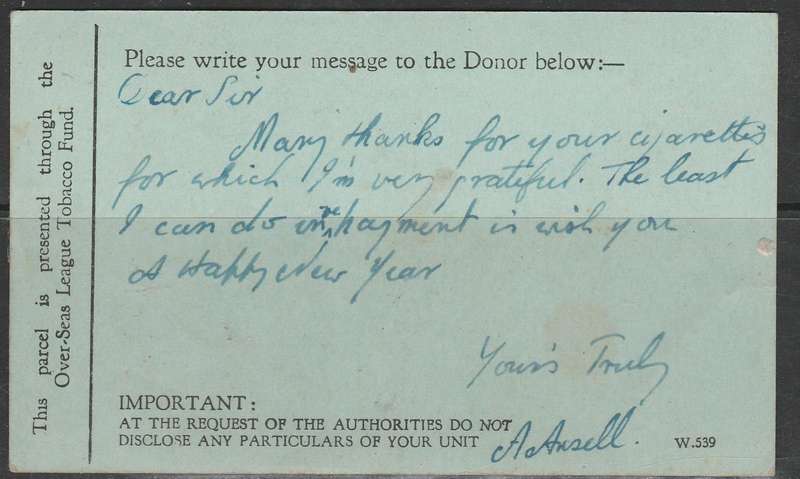 This parcel is presented through the
Over-Seas League Tobacco Fund.
Please write your message to the Donor below:—
Dear Sir
Many thanks for your cigarettes
for which I'm very grateful. The least
I can do in repayment is wish you
A Happy New Year
Your's Truly
A Ansell.
IMPORTANT:
AT THE REQUEST OF THE AUTHORITIES DO NOT
DISCLOSE ANY PARTICULARS OF YOUR UNIT
W.539